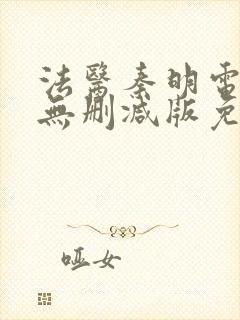 法醫秦明電
無刪減版免
哑女